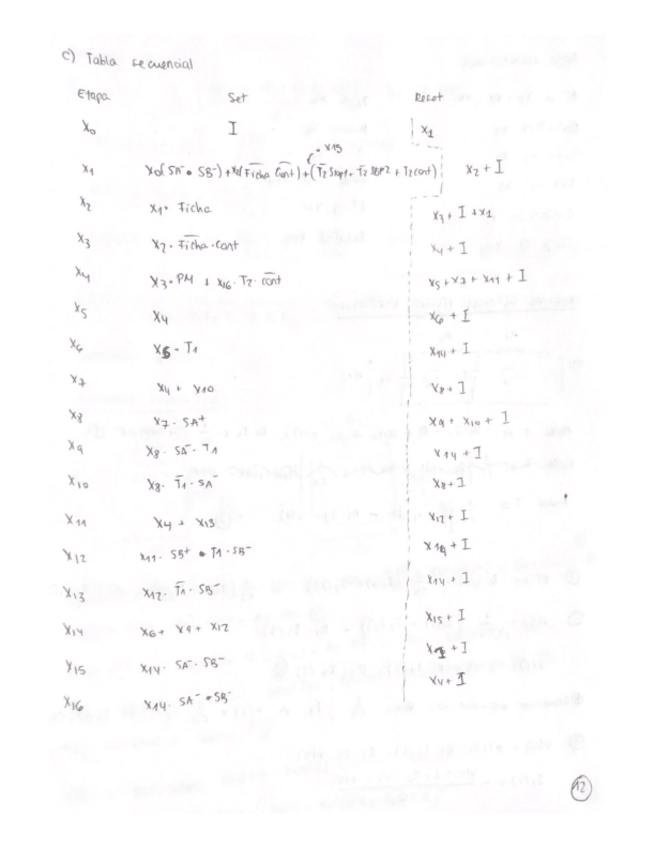 c) Tabla secuencial
Etapa Set Reset
X0 I X1
• X15
X1 X0( SA⁻ • SB⁻) + X2( F̅i̅c̅h̅a̅ C̅o̅n̅t̅) + ( + T2 cont) X2 + I
X2 X1 • Ficha X3 + I + X1
X3 X2 • F̅i̅c̅h̅a̅ • Cont X4 + I
X4 X3 • PM + X16 • T2 • c̅o̅n̅t̅ X5 + X7 + X11 + I
X5 X4 X6 + I
X6 X5 • T1 X14 + I
X7 X4 + X10 X8 + I
X8 X7 • SA⁺ X9 + X10 + I
X9 X8 • SA⁻ • T1 X14 + I
X10 X8 • T̅1̅ • SA⁻ X8 + I
X11 X4 + X13 X12 + I
X12 X11 • SB⁺ • T1 • SB⁻ X14 + I
X13 X12 • T̅1̅ • SB⁻ X14 + I
X14 X6 + X9 + X12 X15 + I
X15 X14 • SA⁻ • SB⁻ + I
X16 X14 • SA⁻ • SB⁻ X4 + I
12